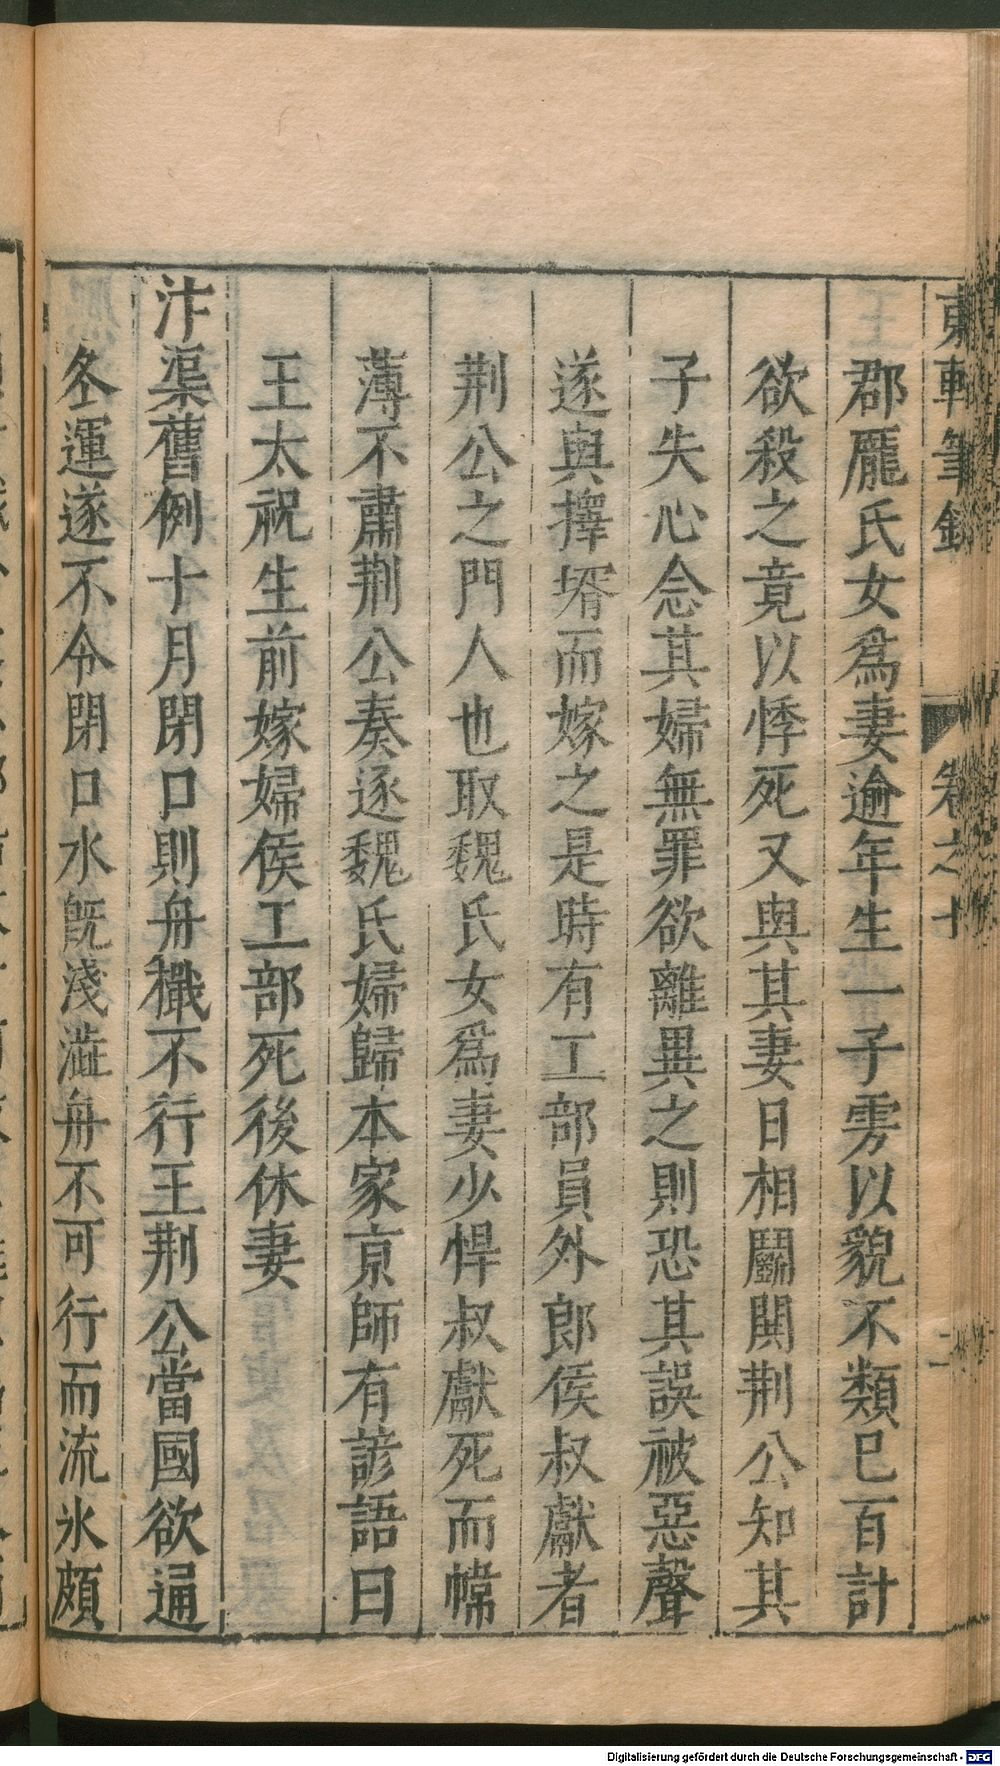 東軒筆錄 卷之七
郡龎氏女爲妻逾年生一子雱以貌不類已百計
欲殺之竟以悸死又與其妻日相鬭鬩荆公知其
子失心念其婦無罪欲離異之則恐其誤被惡聲
遂與擇壻而嫁之是時有工部員外郎侯叔獻者
荆公之門人也取魏氏女爲妻少悍叔獻死而幃
薄不肅荆公奏逐魏氏婦歸本家京師有諺語曰
王太祝生前嫁婦侯工部死後休妻
汴渠舊例十月閉口則舟檝不行王荆公當國欲通
冬運遂不令閉口水旣淺澁舟不可行而流氷頗
Digitalisierung gefördert durch die Deutsche Forschungsgemeinschaft - DFG